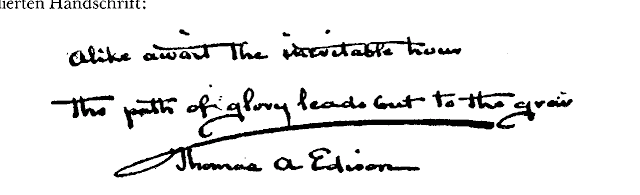 dierten Handschrift:
Alike await the inevitable hour
The path of glory leads but to the grave
Thomas A Edison